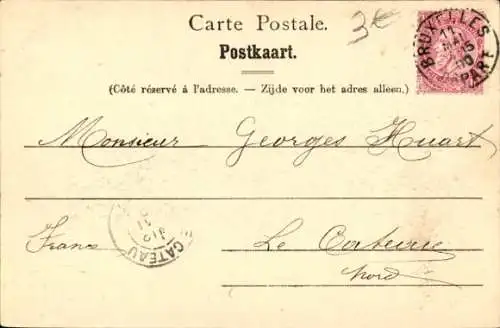 Carte Postale.
3€
Postkaart.
(Côté réservé à l'adresse. — Zijde voor het adres alleen.)
BRUXELLES
DÉPART
Monsieur Georges Huart
France
Le Cateau
Nord
CATEAU